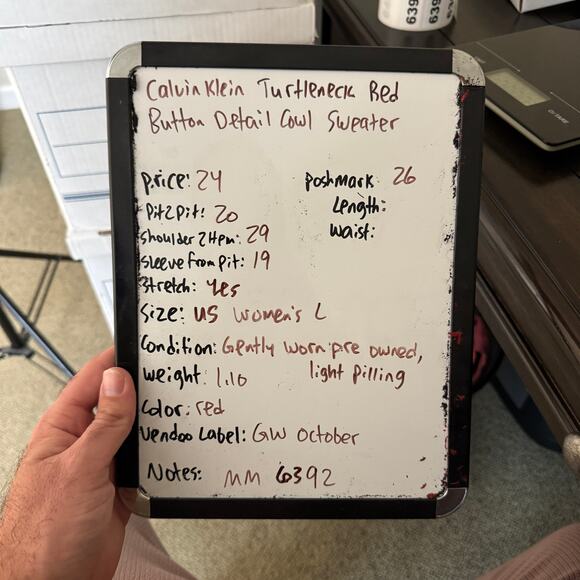 Calvin Klein Turtleneck Red
Button Detail Cowl Sweater
price: 24
poshmark 26
Pit2Pit: 20
Length:
Shoulder 2 Hem: 29
Waist:
Sleeve from Pit: 19
Stretch: Yes
Size: US Women's L
Condition: Gently worn pre owned,
light pilling
Weight: 1.10
Color: red
Vendoo Label: GW October
Notes: MM 6392
639
639